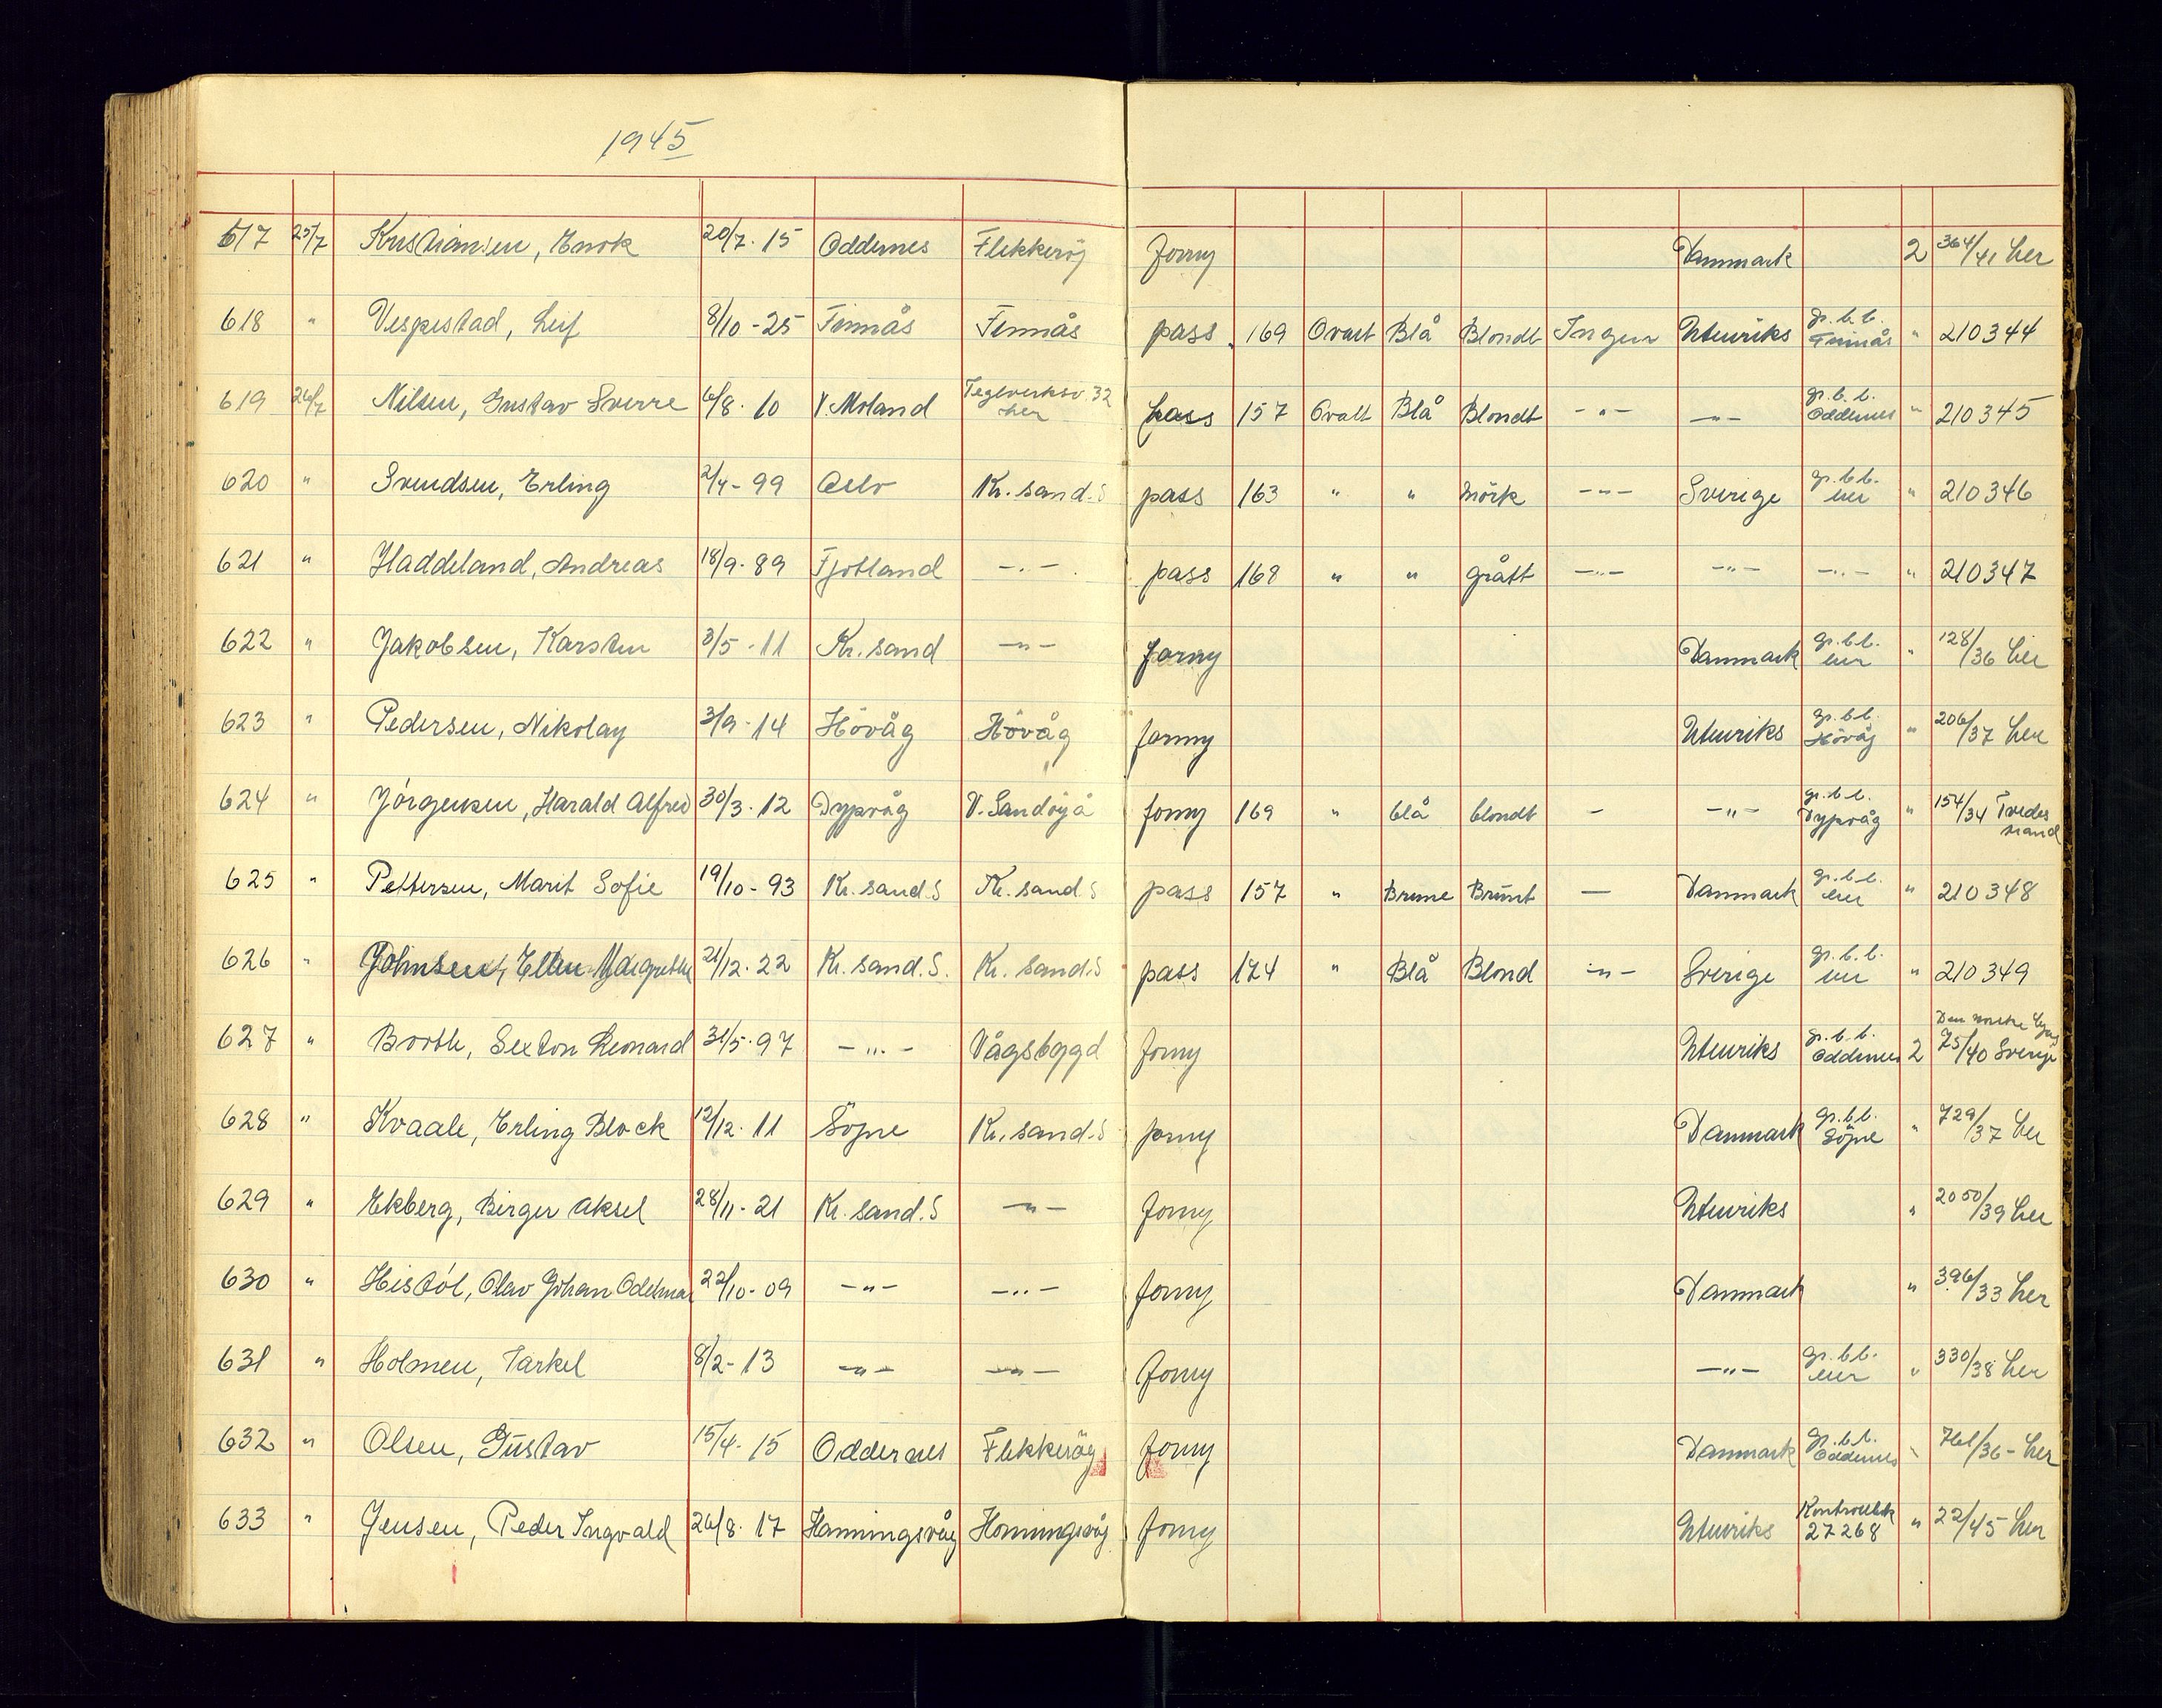 1945
617 25/7 Kristiansen, Enok 20/7. 15 Oddernes Flekkerøy Forny Danmark 2 364/41 her
618 " Vespestad, Leif 8/10 - 25 Finnås Finnås pass 169 Ovalt Blå Blondt Ingen Utenriks gr.b.b. Finnås " 210344
619 26/7 Nilsen, Gustav Sverre 6/8. 10 V. Moland Teglverksv. 32 her pass 157 Ovalt Blå Blondt -"- -"- gr.b.b. Oddernes " 210345
620 " Svendsen, Erling 2/4 - 99 Oslo Kr. sand. S pass 163 " " Mörk -"- Sverige gr.b.b. her " 210346
621 " Haddeland, Andreas 18/9. 89 Fjotland -"- pass 168 " " grått -"- -"- -"- " 210347
622 " Jakobsen, Karsten 3/5 - 11 Kr. sand -"- forny Danmark gr.b.b. her " 128/36 her
623 " Pedersen, Nikolay 3/9 - 14 Hövåg Hövåg forny Utenriks gr.b.b. Hövåg " 206/37 her
624 " Jörgensen, Harald Alfred 30/3. 12 Dypvåg V. Sandöya forny 169 " blå blondt - -"- gr.b.b. Dypvåg " 154/34 Tvedestrand
625 " Pettersen, Marit Sofie 19/10 - 93 Kr. sand. S Kr. sand. S pass 157 " Brune Brunt - Danmark gr.b.b. her " 210348
626 " Johnsen, Ellen Margrethe 21/12. 22 Kr. sand. S. Kr. sand. S pass 174 " Blå Blond -"- Sverige gr.b.b. her " 210349
627 " Booth, Sexton Leonard 31/5. 97 -"- Vågsbygd Forny Utenriks gr.b.b. Oddernes 2 Den norske 75/40 Sverige
628 " Kvaale, Erling Block 12/12. 11 Søgne Kr. sand. S forny Danmark gr.b.b. Søgne " 729/37 her
629 " Ekberg, Birger Aksel 28/11 - 21 Kr. sand. S -"- Forny Utenriks " 2050/39 her
630 " Histöl, Olav Johan Oddmar 22/10 - 09 -"- -"- Forny Danmark " 396/33 her
631 " Holmen, Tarkel 8/2 - 13 -"- -"- Forny -"- gr.b.b. her " 330/38 her
632 " Olsen, Gustav 15/4. 15 Oddernes Flekkeröy Forny Danmark gr.b.b. Oddernes " 761/36 - her
633 " Jensen, Peder Ingvald 26/8. 17 Hanningsvåg Honningsvåg Forny Utenriks Kontrollbk 27268 " 22/45 her